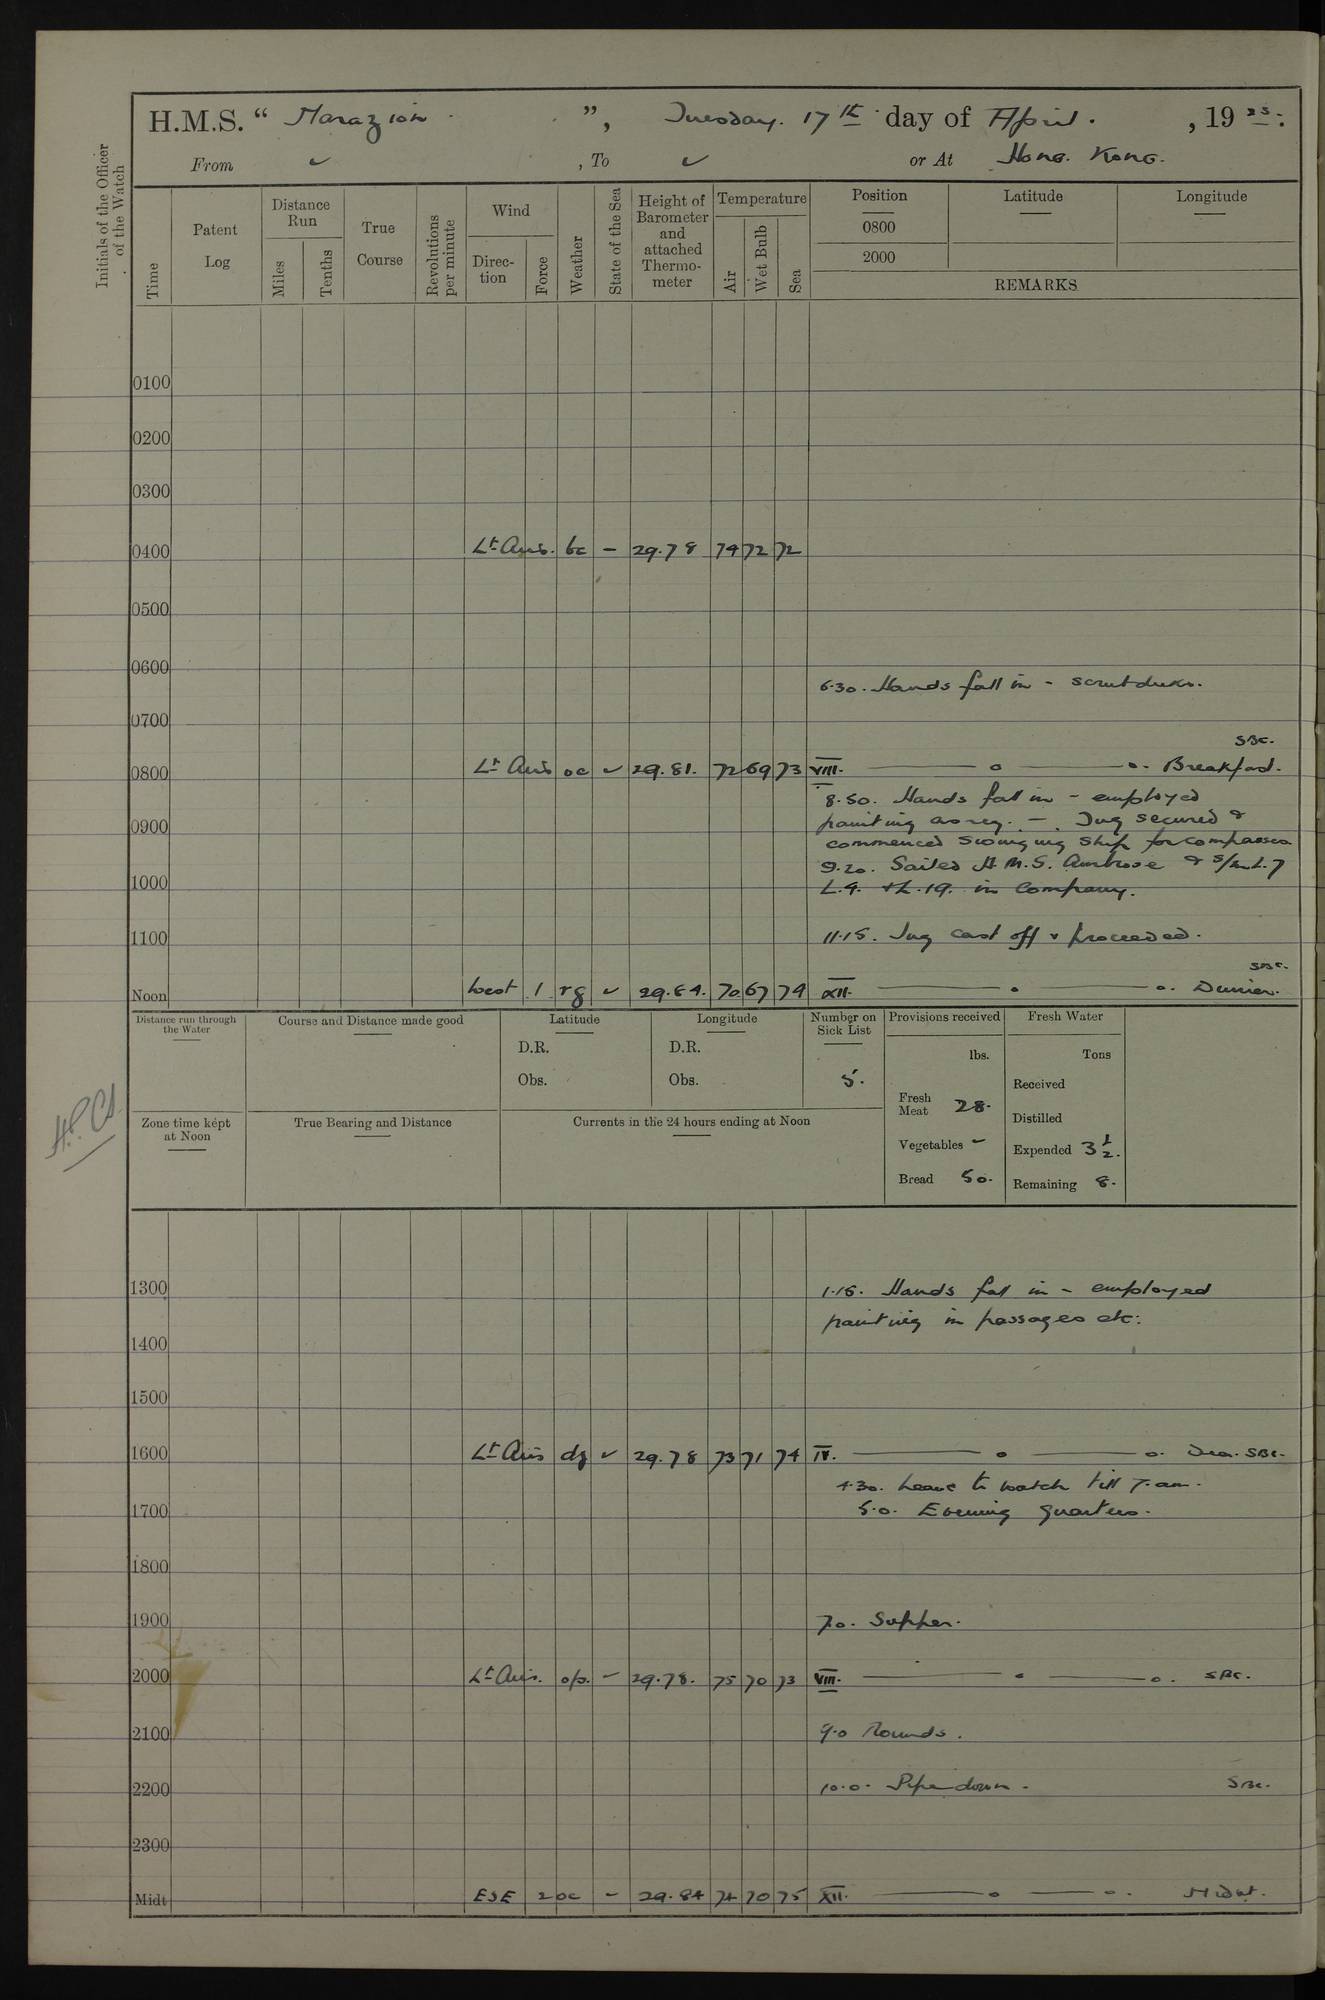 H.M.S. “ Marazion ”, Tuesday. 17th day of April. , 19 23:
From ✓ , To ✓ or At Hong. Kong.
Initials of the Officer of the Watch
Time
Patent Log
Distance Run
Miles
Tenths
True Course
Revolutions per minute
Wind
Direc-tion
Force
Weather
State of the Sea
Height of Barometer and attached Thermo-meter
Temperature
Air
Wet Bulb
Sea
Position
Latitude
Longitude
0800
2000
REMARKS
0100
0200
0300
0400 Lt Airs. bc – 29.78 74 72 72
0500
0600
6.30. Hands fall in - scrub decks.
0700
SBC.
0800 Lt Airs oc ✓ 29.81. 72 69 73 VIII. —— o —— o. Breakfast.
8.50. Hands fall in - employed
0900 painting as req. – Tug secured &
commenced swinging ship for compasses
9.20. Sailed H.M.S. Ambrose & S/m L.7
1000 L.9. & L.19. in Company.
1100 11.15. Tug cast off & proceeded.
SBC.
Noon West 1 rg ✓ 29.84. 70 67 74 XII. —— o —— o. Dinner.
Distance run through the Water
Course and Distance made good
Latitude
D.R.
Obs.
Longitude
D.R.
Obs.
Number on Sick List
5.
Provisions received
lbs.
Fresh Meat 28.
Vegetables –
Bread 50.
Fresh Water
Tons
Received
Distilled
Expended 3 1/2.
Remaining 8.
Zone time kept at Noon
True Bearing and Distance
Currents in the 24 hours ending at Noon
1300 1.15. Hands fall in - employed
painting in passages etc:
1400
1500
1600 Lt Airs dg ✓ 29.78 73 71 74 IV. —— o —— o. Tea. SBC.
4.30. Leave to watch till 7. am.
1700 5.0. Evening Quarters.
1800
1900 7.0. Supper.
2000 Lt Airs. op. – 29.78. 75 70 73 VIII. —— o —— o. SBC.
2100 9.0 Rounds.
2200 10.0. Pipe down. SBC.
2300
Midt ESE 2 oc – 29.84 74 70 75 XII. —— o —— o. Midnt.